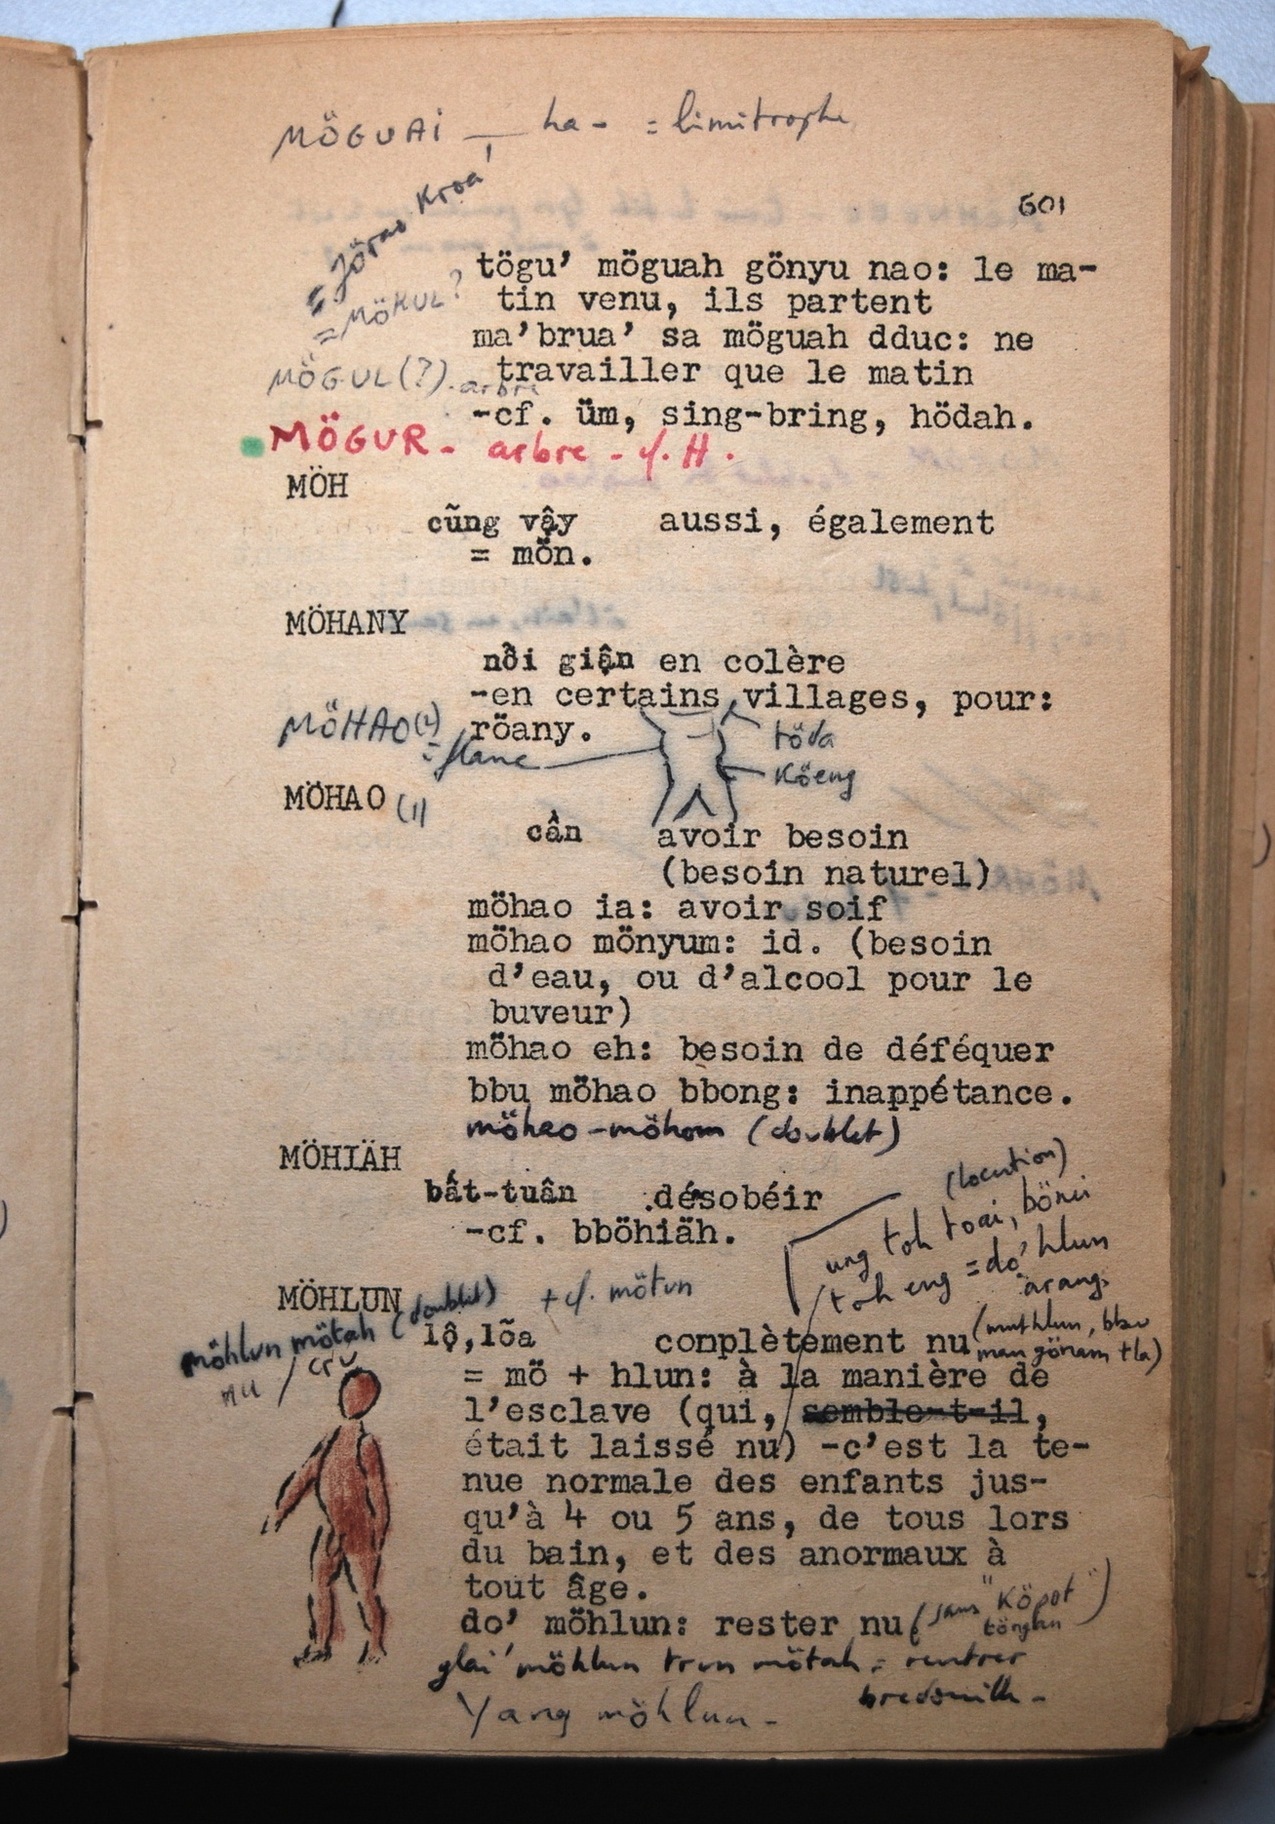 MÖGUAI — ha- = limitrophe
= Jörao Kroa'
601
= MÖKUL?
tögu' möguah gönyu nao: le ma-
tin venu, ils partent
ma'brua' sa möguah dduc: ne
MÖGUL(?). arbre
travailler que le matin
-cf. ŭm, sing-bring, hödah.
MÖGUR - arbre - cf. H.
MÖH
cũng vậy aussi, également
= mŏn.
MÖHANY
nồi giận en colère
-en certains villages, pour:
röany.
MÖHAO(2)
= flanc
töda
Köeng
MÖHAO (1)
cần avoir besoin
(besoin naturel)
möhao ia: avoir soif
möhao mönyum: id. (besoin
d'eau, ou d'alcool pour le
buveur)
möhao eh: besoin de déféquer
bbu möhao bbong: inappétance.
möhao-möhom (doublet)
MÖHIÄH
bất-tuân désobéir
-cf. bböhiäh.
(locution)
ung toh toai, bönei
toh eng = do' hlun
arang
MÖHLUN
+ cf. mötun
möhlun mötah (doublet)
nu / cru
lộ, lõa complètement nu
= mö + hlun: à la manière de
l'esclave (qui, semble-t-il,
était laissé nu) -c'est la te-
nue normale des enfants jus-
qu'à 4 ou 5 ans, de tous lors
du bain, et des anormaux à
tout âge.
do' möhlun: rester nu (sans "Köpot"
töngan )
glai' möhlun trun mötah = rentrer
bredouille -
Yang möhlun -